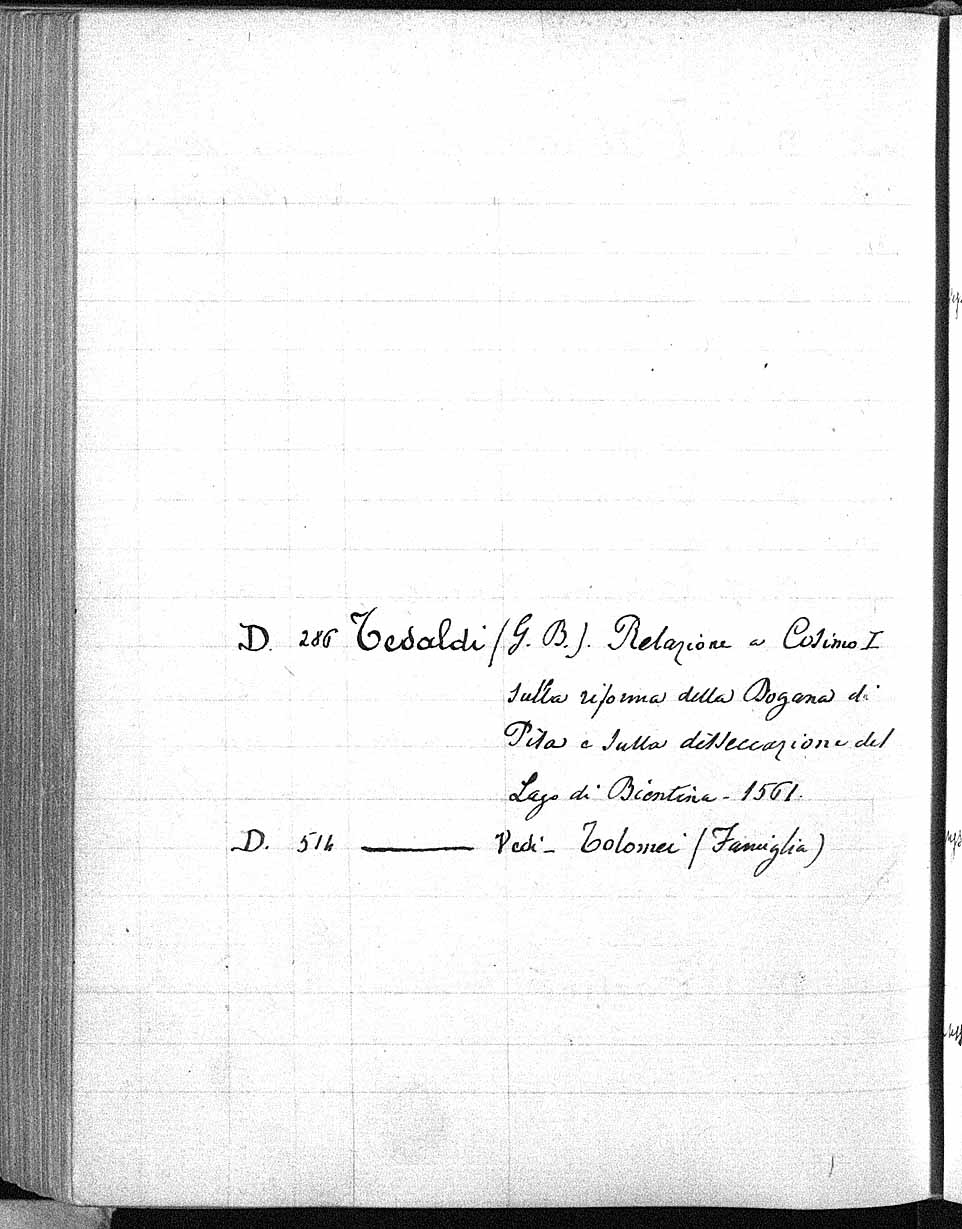 D. 286 Tedaldi (G. B.). Relazione a Cosimo I
sulla riforma della Dogana di
Pisa e sulla disseccazione del
Lago di Bientina - 1561.
D. 514 ——— Vedi - Tolomei (Famiglia)